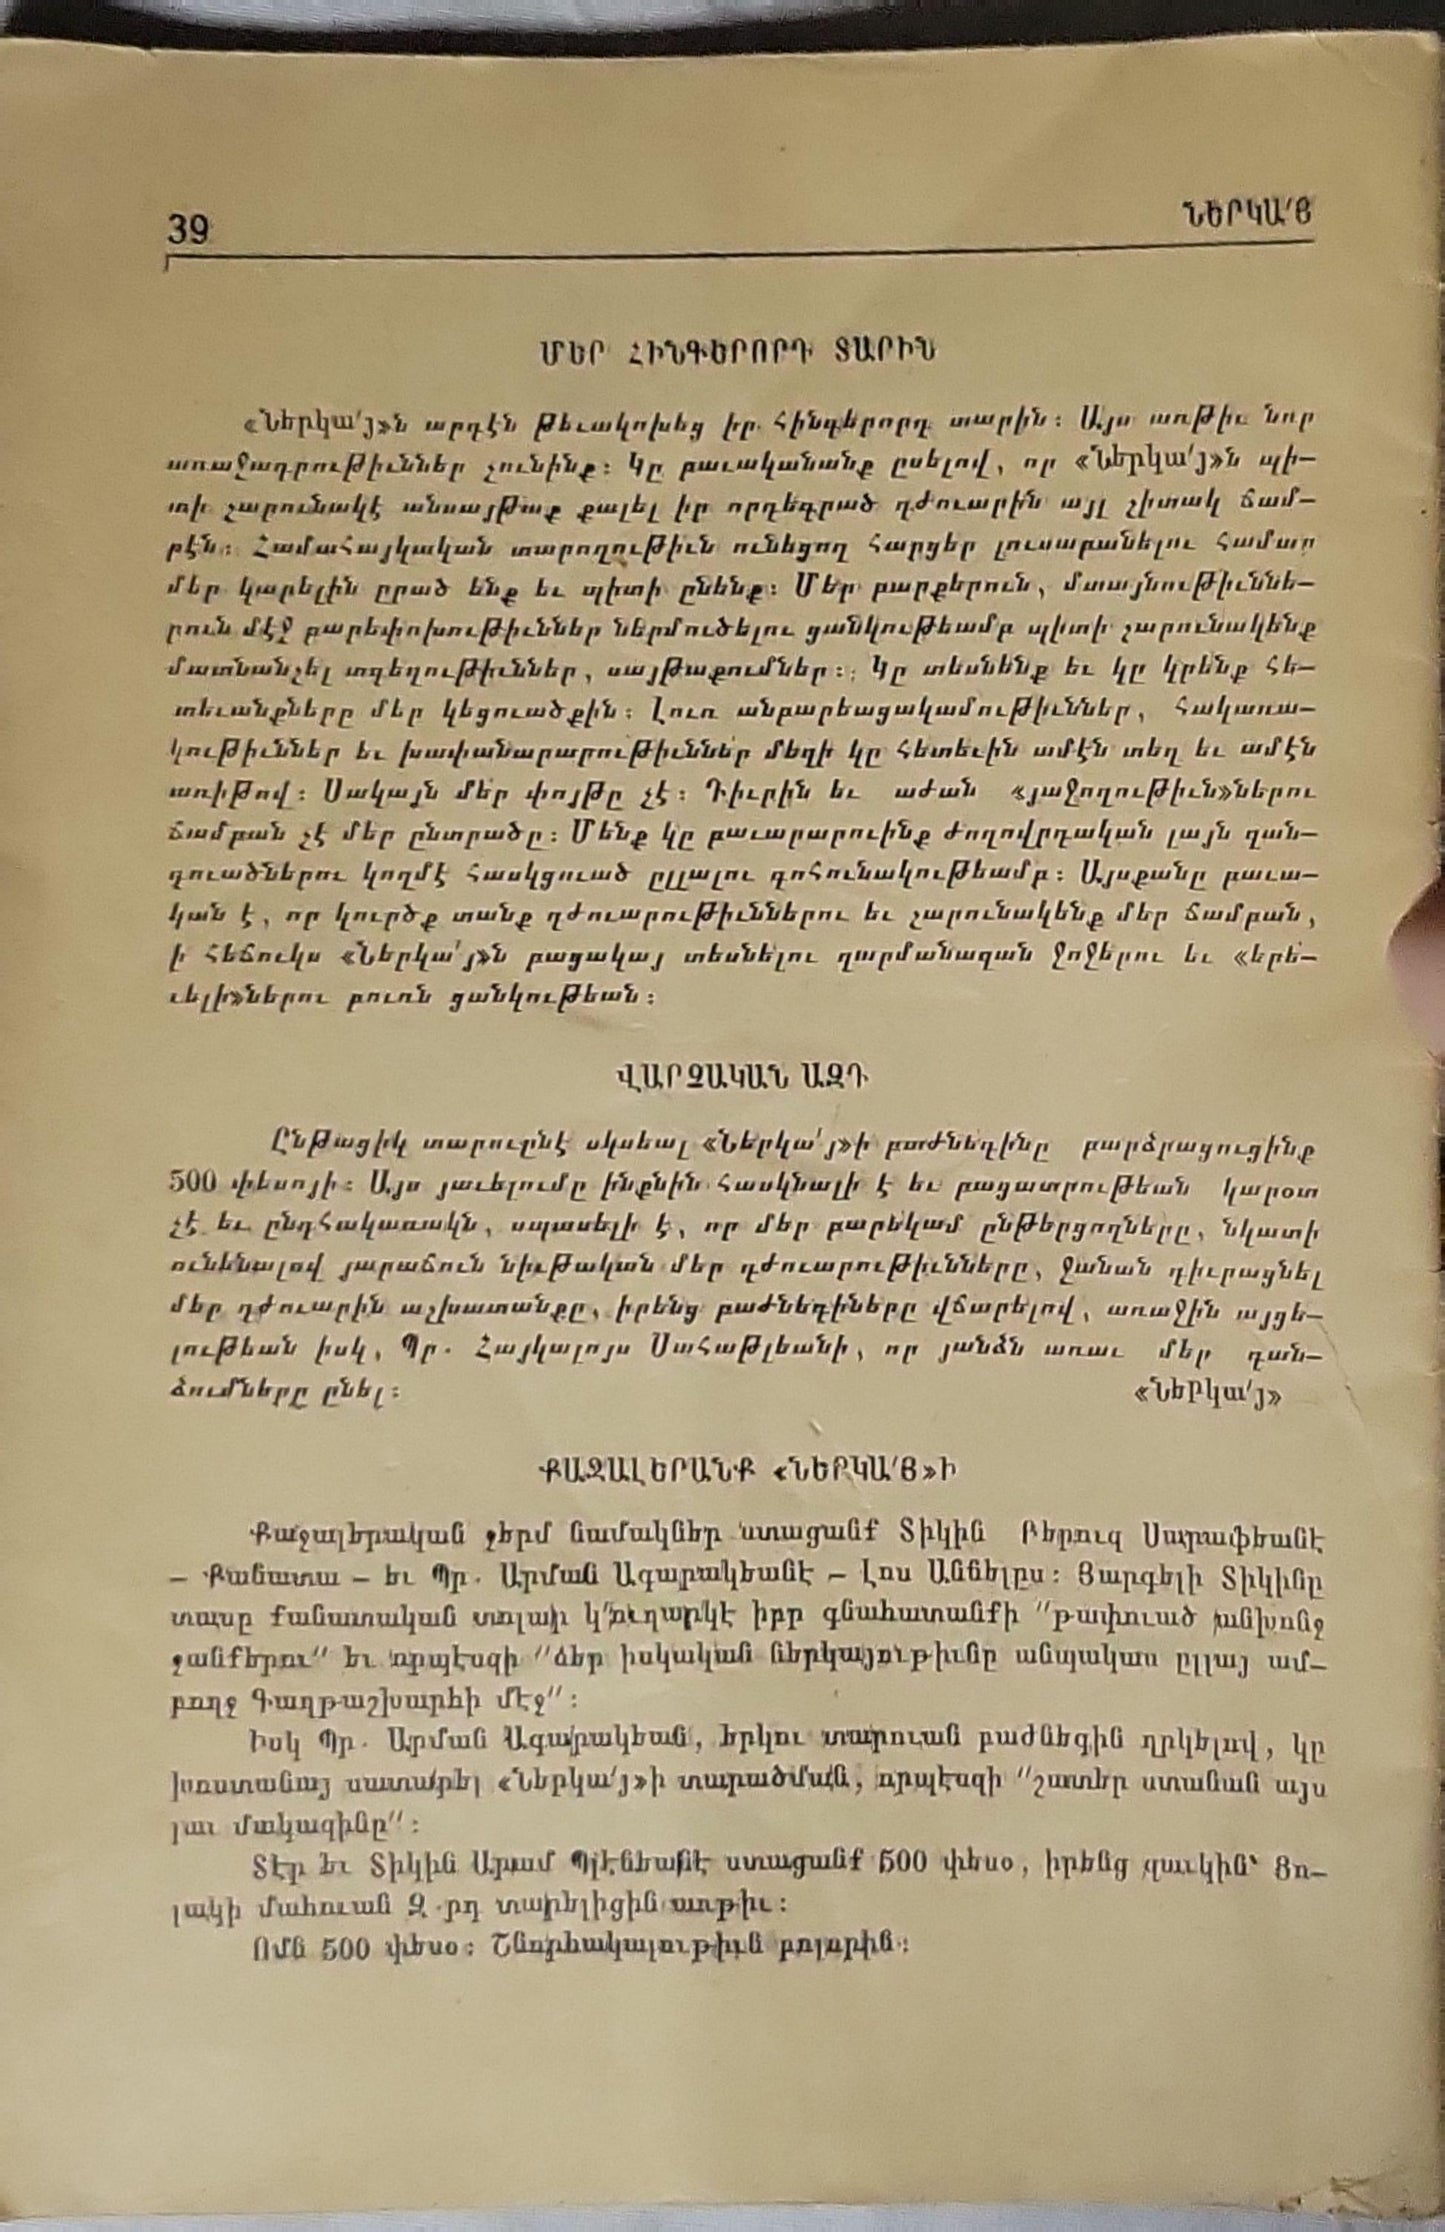 39
ՆԵՐԿԱ՛Յ
ՄԵՐ ՀԻՆԳԵՐՈՐԴ ՏԱՐԻՆ
«Ներկա՛յ»ն արդէն թեւակոխեց իր հինգերորդ տարին։ Այս առթիւ նոր
առաջադրութիւններ չունինք։ Կը բաւականանք ըսելով, որ «Ներկա՛յ»ն պի–
տի շարունակէ անսայթաք քալել իր որդեգրած դժուարին այլ շիտակ ճամ–
բէն։ Համահայկական տարողութիւն ունեցող հարցեր լուսաբանելու համար
մեր կարելին ըրած ենք եւ պիտի ընենք։ Մեր բարքերուն, մտայնութիւննե–
րուն մէջ բարեփոխութիւններ ներմուծելու ցանկութեամբ պիտի շարունակենք
մատնանշել տգեղութիւններ, սայթաքումներ։ Կը տեսնենք եւ կը կրենք հե–
տեւանքները մեր կեցուածքին։ Լուռ անբարեացակամութիւններ, հակառա–
կութիւններ եւ խափանարարութիւններ մեզի կը հետեւին ամէն տեղ եւ ամէն
առիթով։ Սակայն մեր փոյթը չէ։ Դիւրին եւ աժան «յաջողութիւն»ներու
ճամբան չէ մեր ընտրածը։ Մենք կը բաւարարուինք ժողովրդական լայն զան–
գուածներու կողմէ հասկցուած ըլլալու գոհունակութեամբ։ Այսքանը բաւա–
կան է, որ կուրծք տանք դժուարութիւններու եւ շարունակենք մեր ճամբան,
ի հեճուկս «Ներկա՛յ»ն բացակայ տեսնելու զարմանազան ջոջերու եւ «երե–
ւելի»ներու բուռն ցանկութեան։
ՎԱՐՉԱԿԱՆ ԱԶԴ
Ընթացիկ տարուընէ սկսեալ «Ներկա՛յ»ի բաժնեգինը բարձրացուցինք
500 փեսոյի։ Այս յաւելումը ինքնին հասկնալի է եւ բացատրութեան կարօտ
չէ եւ ընդհակառակն, սպասելի է, որ մեր բարեկամ ընթերցողները, նկատի
ունենալով յարաճուն նիւթական մեր դժուարութիւնները, ջանան դիւրացնել
մեր դժուարին աշխատանքը, իրենց բաժնեգիները վճարելով, առաջին այցե–
լութեան իսկ, Պր. Հայկալոյս Սահաթլեանի, որ յանձն առաւ մեր գան–
ձումները ընել։
«Ներկա՛յ»
ՔԱՋԱԼԵՐԱՆՔ «ՆԵՐԿԱ՛Յ»Ի
Քաջալերական ջերմ նամակներ ստացանք Տիկին Բերուզ Սարաֆեանէ
– Քանատա – եւ Պր. Արման Ագարակեանէ – Լոս Անճելըս։ Յարգելի Տիկինը
տասը քանատական տոլար կ՚ուղարկէ իբր գնահատանքի "թափուած անխոնջ
ջանքերու" եւ որպէսզի "ձեր իսկական ներկայութիւնը անպակաս ըլլայ ամ–
բողջ Գաղթաշխարհի մէջ"։
Իսկ Պր. Արման Ագարակեան, երկու տարուան բաժնեգին ղրկելով, կը
խոստանայ սատարել «Ներկա՛յ»ի տարածման, որպէսզի "շատեր ստանան այս
լաւ մակազինը"։
Տէր եւ Տիկին Արամ Պլէնեանէ ստացանք 500 փեսօ, իրենց զաւկին՝ Յո–
լակի մահուան Զ.րդ տարելիցին առթիւ։
Ոմն 500 փեսօ։ Շնորհակալութիւն բոլորին։